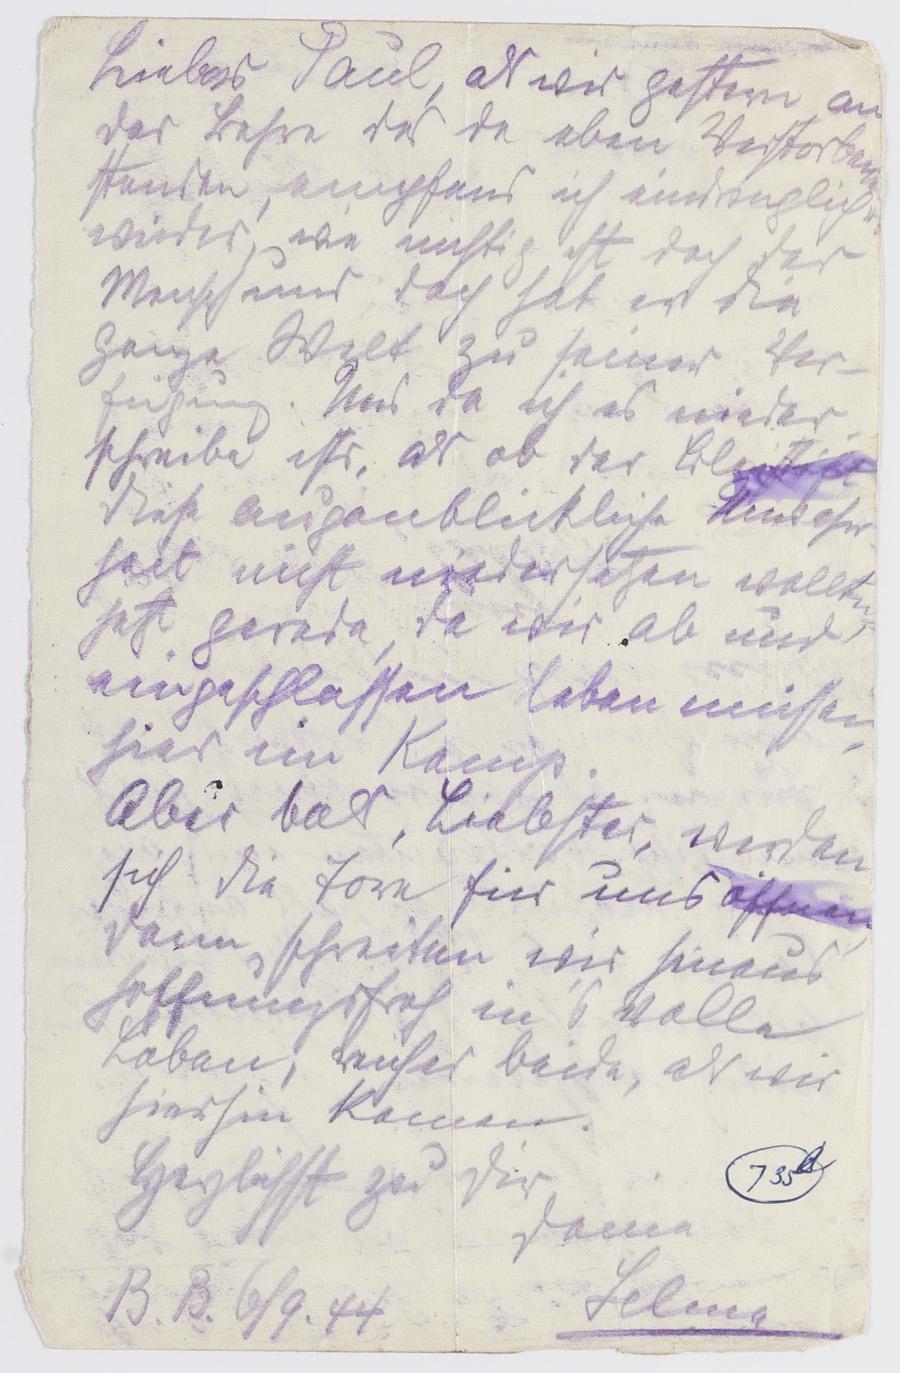 Liebes Paul, als wir gestern an
der Bahre des da eben Verstorbenen
standen, empfand ich eindringlich
wieder, wie nichtig ist doch der
Mensch und doch hat er die
ganze Welt zu seiner Ver-
fügung. Und da ich es nieder
schreibe ists, als ob der
diese augenblickliche
heit nicht niedersetzen wollte,
jetzt gerade, da wir ab und
eingeschlossen leben müssen,
hier im Kamp.
Aber bald, Liebster, werden
sich die Tore für uns öffnen
dann schreiten wir hinaus
hoffnungsfroh in's volle
Leben, reicher beide, als wir
hierhin kamen.
Herzlichst zu Dir
Deine
Selma
B. B. 6/9. 44
735